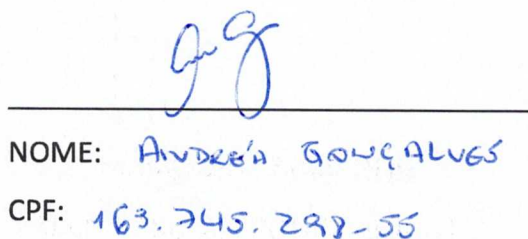 NOME: ANDRÉA GONÇALVES
CPF: 163.745.298-55